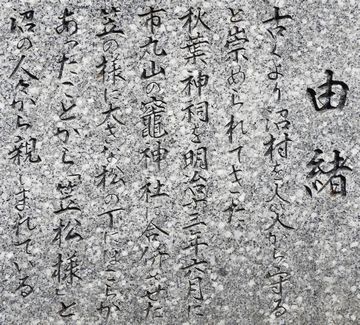 由緒
古くより沼村を火災から守る
と崇められてきた、
秋葉神祠を明治廿三年六月に
市丸山の竈神社に合介させた
笠の様に大きな松の下にほこらが
あったことから「笠松様」と
沼の人々から親しまれている